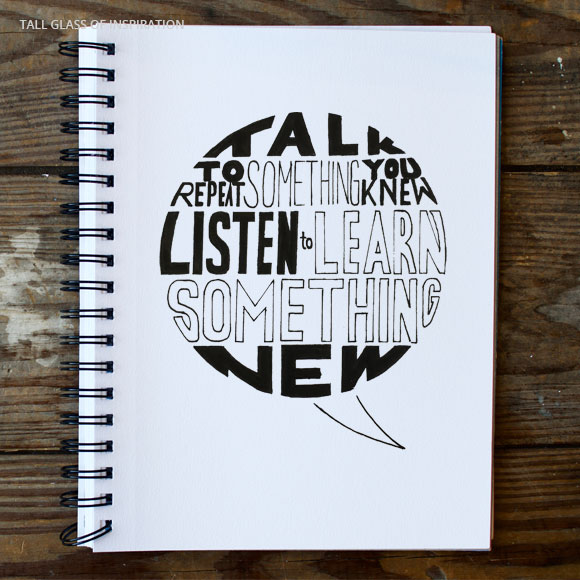 TALL GLASS OF INSPIRATION
TALK
TO REPEAT SOMETHING YOU KNEW
LISTEN to LEARN
SOMETHING
NEW